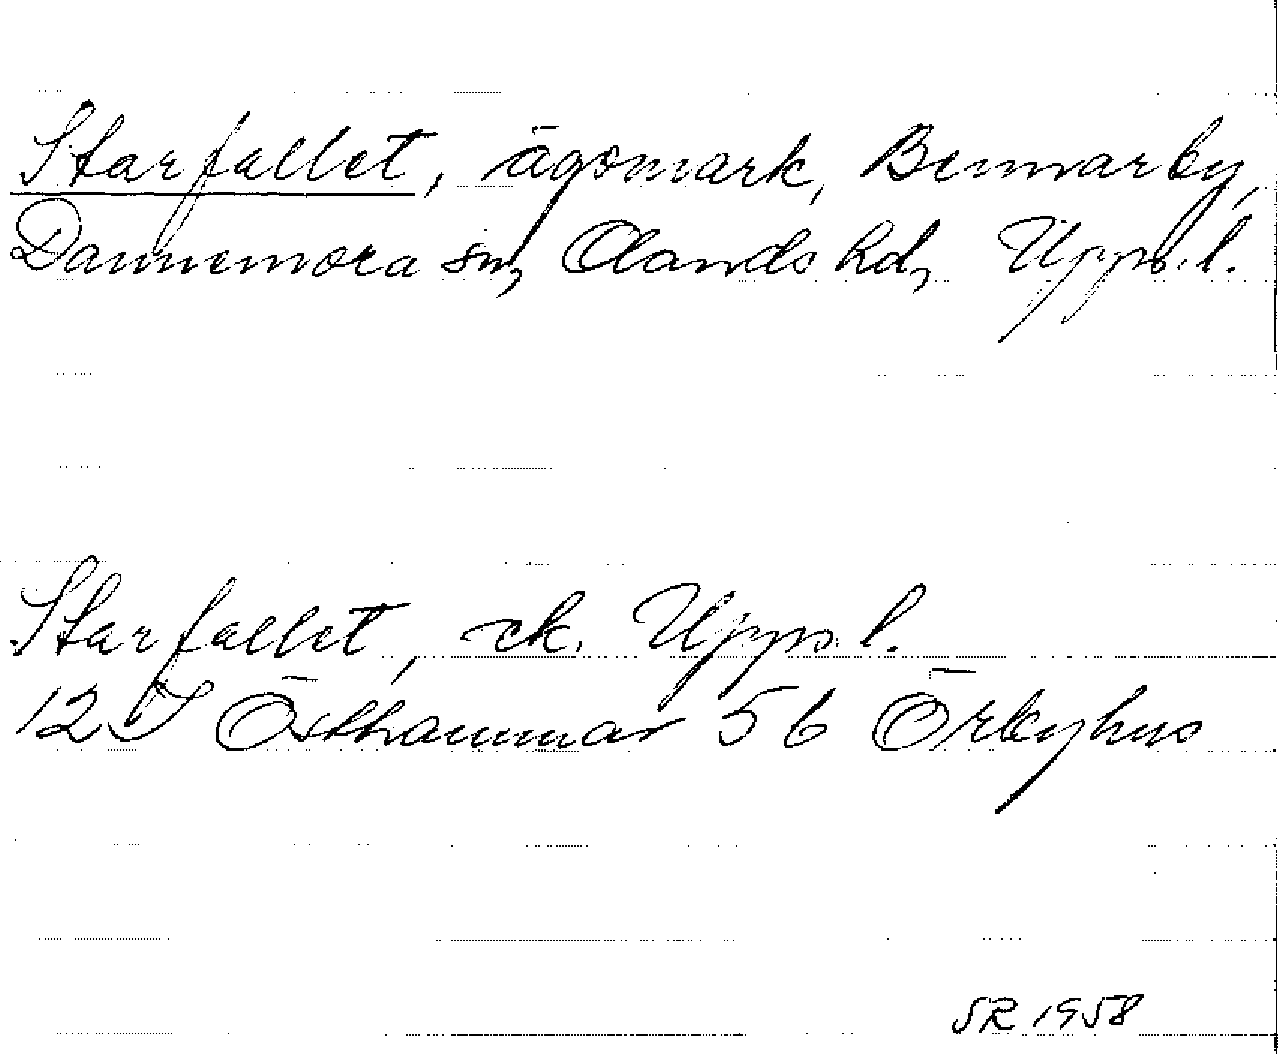 Starfallet, ägomark, Bennarby,
Dannemora sn, Olands hd, Upps. l.
Starfallet, ek. Upps. l.
12I Östhammar 56 Örbyhus
SR 1958